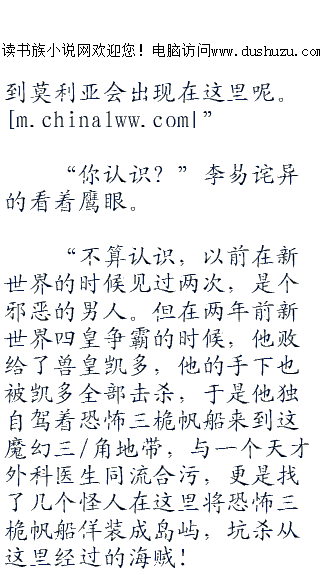 读书族小说网欢迎您！电脑访问www.dushuzu.com
到莫利亚会出现在这里呢。
[m.chinalww.com|”
“你认识？”李易诧异
的看着鹰眼。
“不算认识，以前在新
世界的时候见过两次，是个
邪恶的男人。但在两年前新
世界四皇争霸的时候，他败
给了兽皇凯多，他的手下也
被凯多全部击杀，于是他独
自驾着恐怖三桅帆船来到这
魔幻三/角地带，与一个天才
外科医生同流合污，更是找
了几个怪人在这里将恐怖三
桅帆船佯装成岛屿，坑杀从
这里经过的海贼！